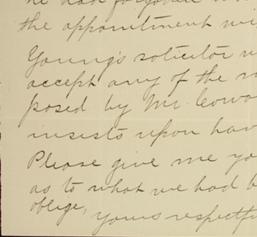 the appointment wi
Young's solicitor w
accept any of the
posed by Mr. Cowa
insists upon hav
Please give me yo
as to what we had b
oblige,
yours respectfu